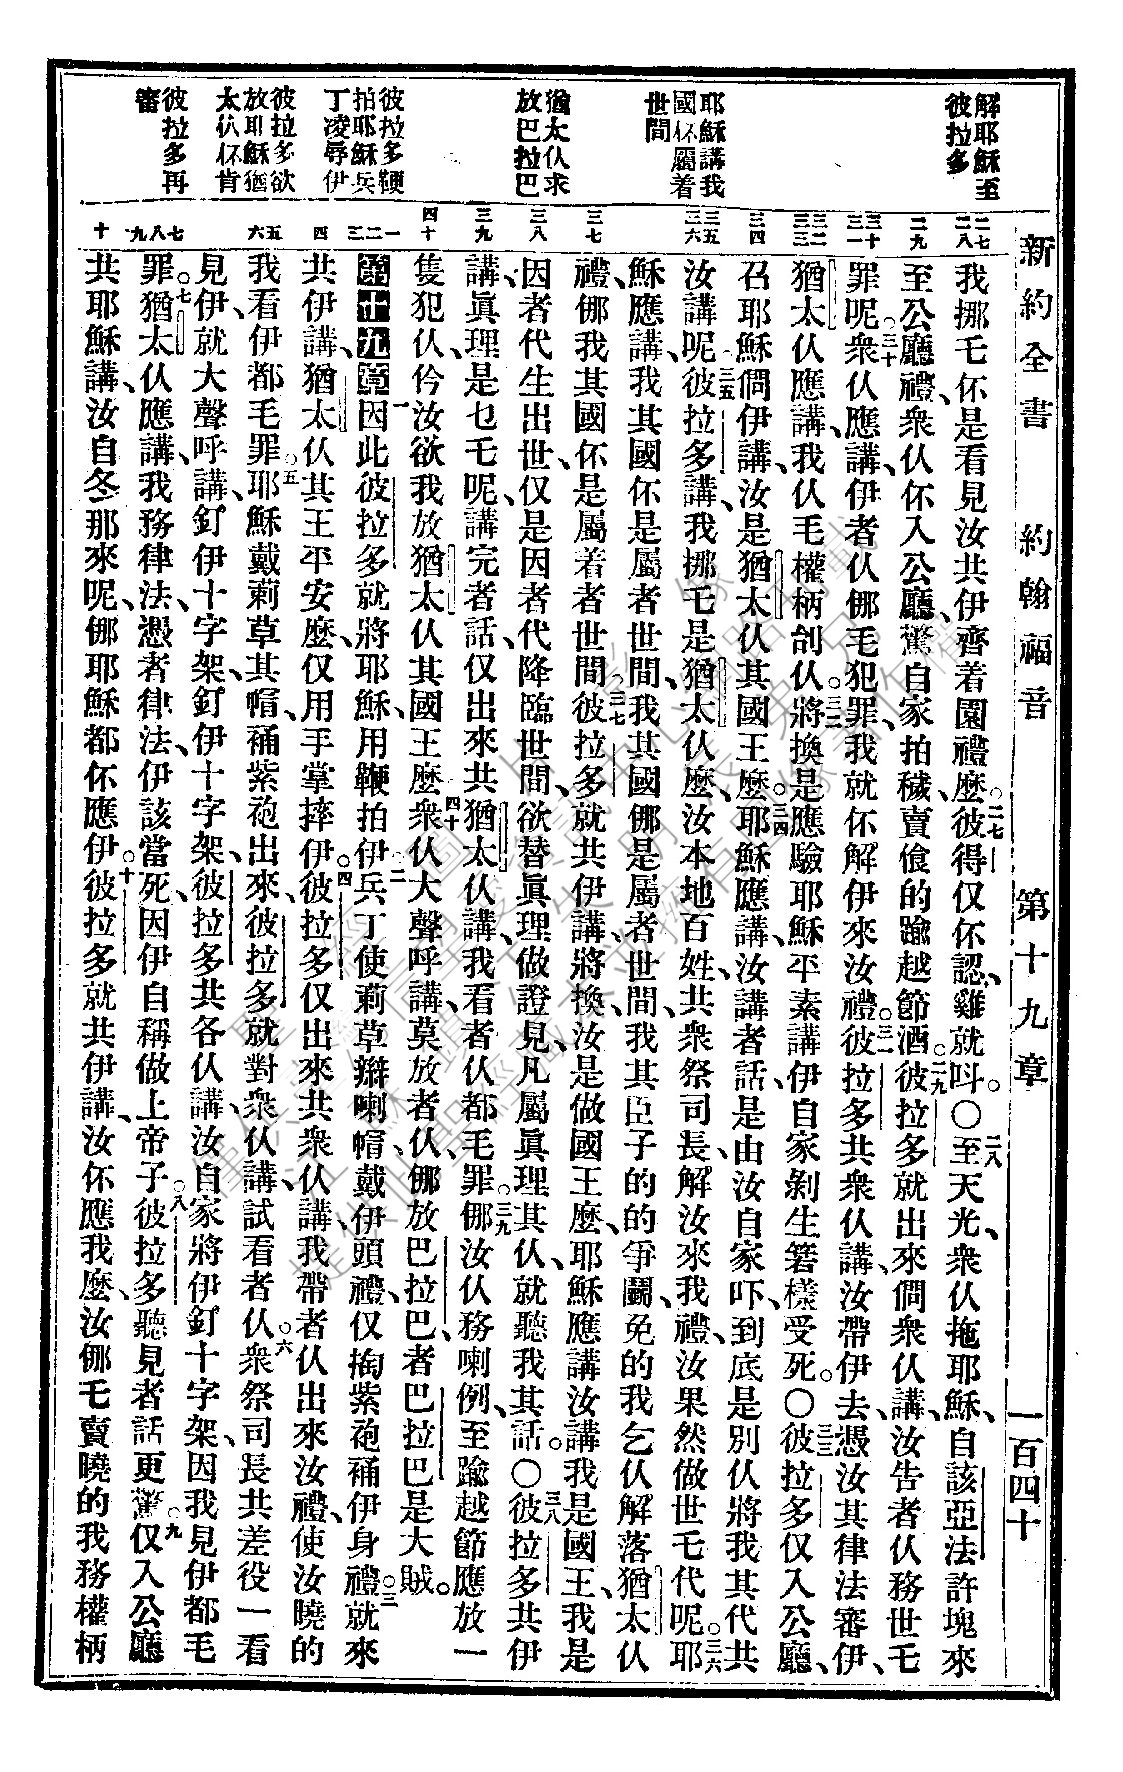 新約全書 約翰福音 第十九章 一百四十
解耶穌至
彼拉多
耶穌講我
國伓屬着
世間
猶太仈求
放巴拉巴
彼拉多鞭
拍耶穌兵
丁凌辱伊
彼拉多欲
放耶穌猶
太仈伓肯
彼拉多再
審
二七 二八 二九 三十 三一 三二 三三 三四 三五 三六 三七 三八 三九 四十 一 二 三 四 五 六 七 八 九 十
我挪乇伓是看見汝共伊齊着園禮麽。二七彼得仅伓認、雞就呌。〇二八至天光、衆仈拖耶穌、自該亞法許塊來
至公廳禮、衆仈伓入公廳、驚自家拍穢賣㑚的踰越節酒。二九彼拉多就出來僩衆仈講、汝告者仈務世乇
罪呢。三十衆仈應講、伊者仈㑚毛犯罪、我就伓解伊來汝禮。三一彼拉多共衆仈講、汝帶伊去、憑汝其律法審伊、
猶太仈應講、我仈毛權柄剖仈。三二將換是應驗耶穌平素講伊自家剝生箬樣受死。〇三三彼拉多仅入公廳、
召耶穌僩伊講、汝是猶太仈其國王麽。三四耶穌應講、汝講者話、是由汝自家吓、到底是別仈將我其代共
汝講呢。三五彼拉多講、我挪乇是猶太仈麽、汝本地百姓、共衆祭司長、解汝來我禮、汝果然做世乇代呢。三六耶
穌應講、我其國伓是屬者世間、我其國㑚是屬者世間、我其臣子的的爭鬭、免的我乞仈解落猶太仈
禮、㑚我其國、伓是屬着者世間。三七彼拉多就共伊講、將換、汝是做國王麽、耶穌應講汝講我是國王、我是
因者代生出世、仅是因者代降臨世間、欲替眞理做證見、凡屬眞理其仈、就聽我其話。〇三八彼拉多共伊
講、眞理是乜乇呢、講完者話、仅出來共猶太仈講、我看者仈都毛罪。三九㑚汝仈務喇例、至踰越節應放一
隻犯仈、仱汝欲我放猶太仈其國王麽。四十衆仈大聲呼講、莫放者仈、㑚放巴拉巴、者巴拉巴是大賊。
第十九章一因此彼拉多就將耶穌、用鞭拍伊。二兵丁使莿草辮喇帽、戴伊頭禮、仅掏紫袍補伊身禮。三就來
共伊講、猶太仈其王平安麽、仅用手掌摔伊。四彼拉多仅出來共衆仈講、我帶者仈出來汝禮、使汝曉的
我看伊都毛罪。五耶穌戴莿草其帽、補紫袍出來、彼拉多就對衆仈講、試看者仈。六衆祭司長共差役一看
見伊、就大聲呼講、釘伊十字架、釘伊十字架、彼拉多共各仈講、汝自家將伊釘十字架、因我見伊都毛
罪。七猶太仈應講、我務律法、憑者律法、伊該當死、因伊自稱做上帝子。八彼拉多聽見者話更驚。九仅入公廳
共耶穌講、汝自冬那來呢、㑚耶穌都伓應伊。十彼拉多就共伊講、汝伓應我麽、汝㑚乇賣曉的我務權柄